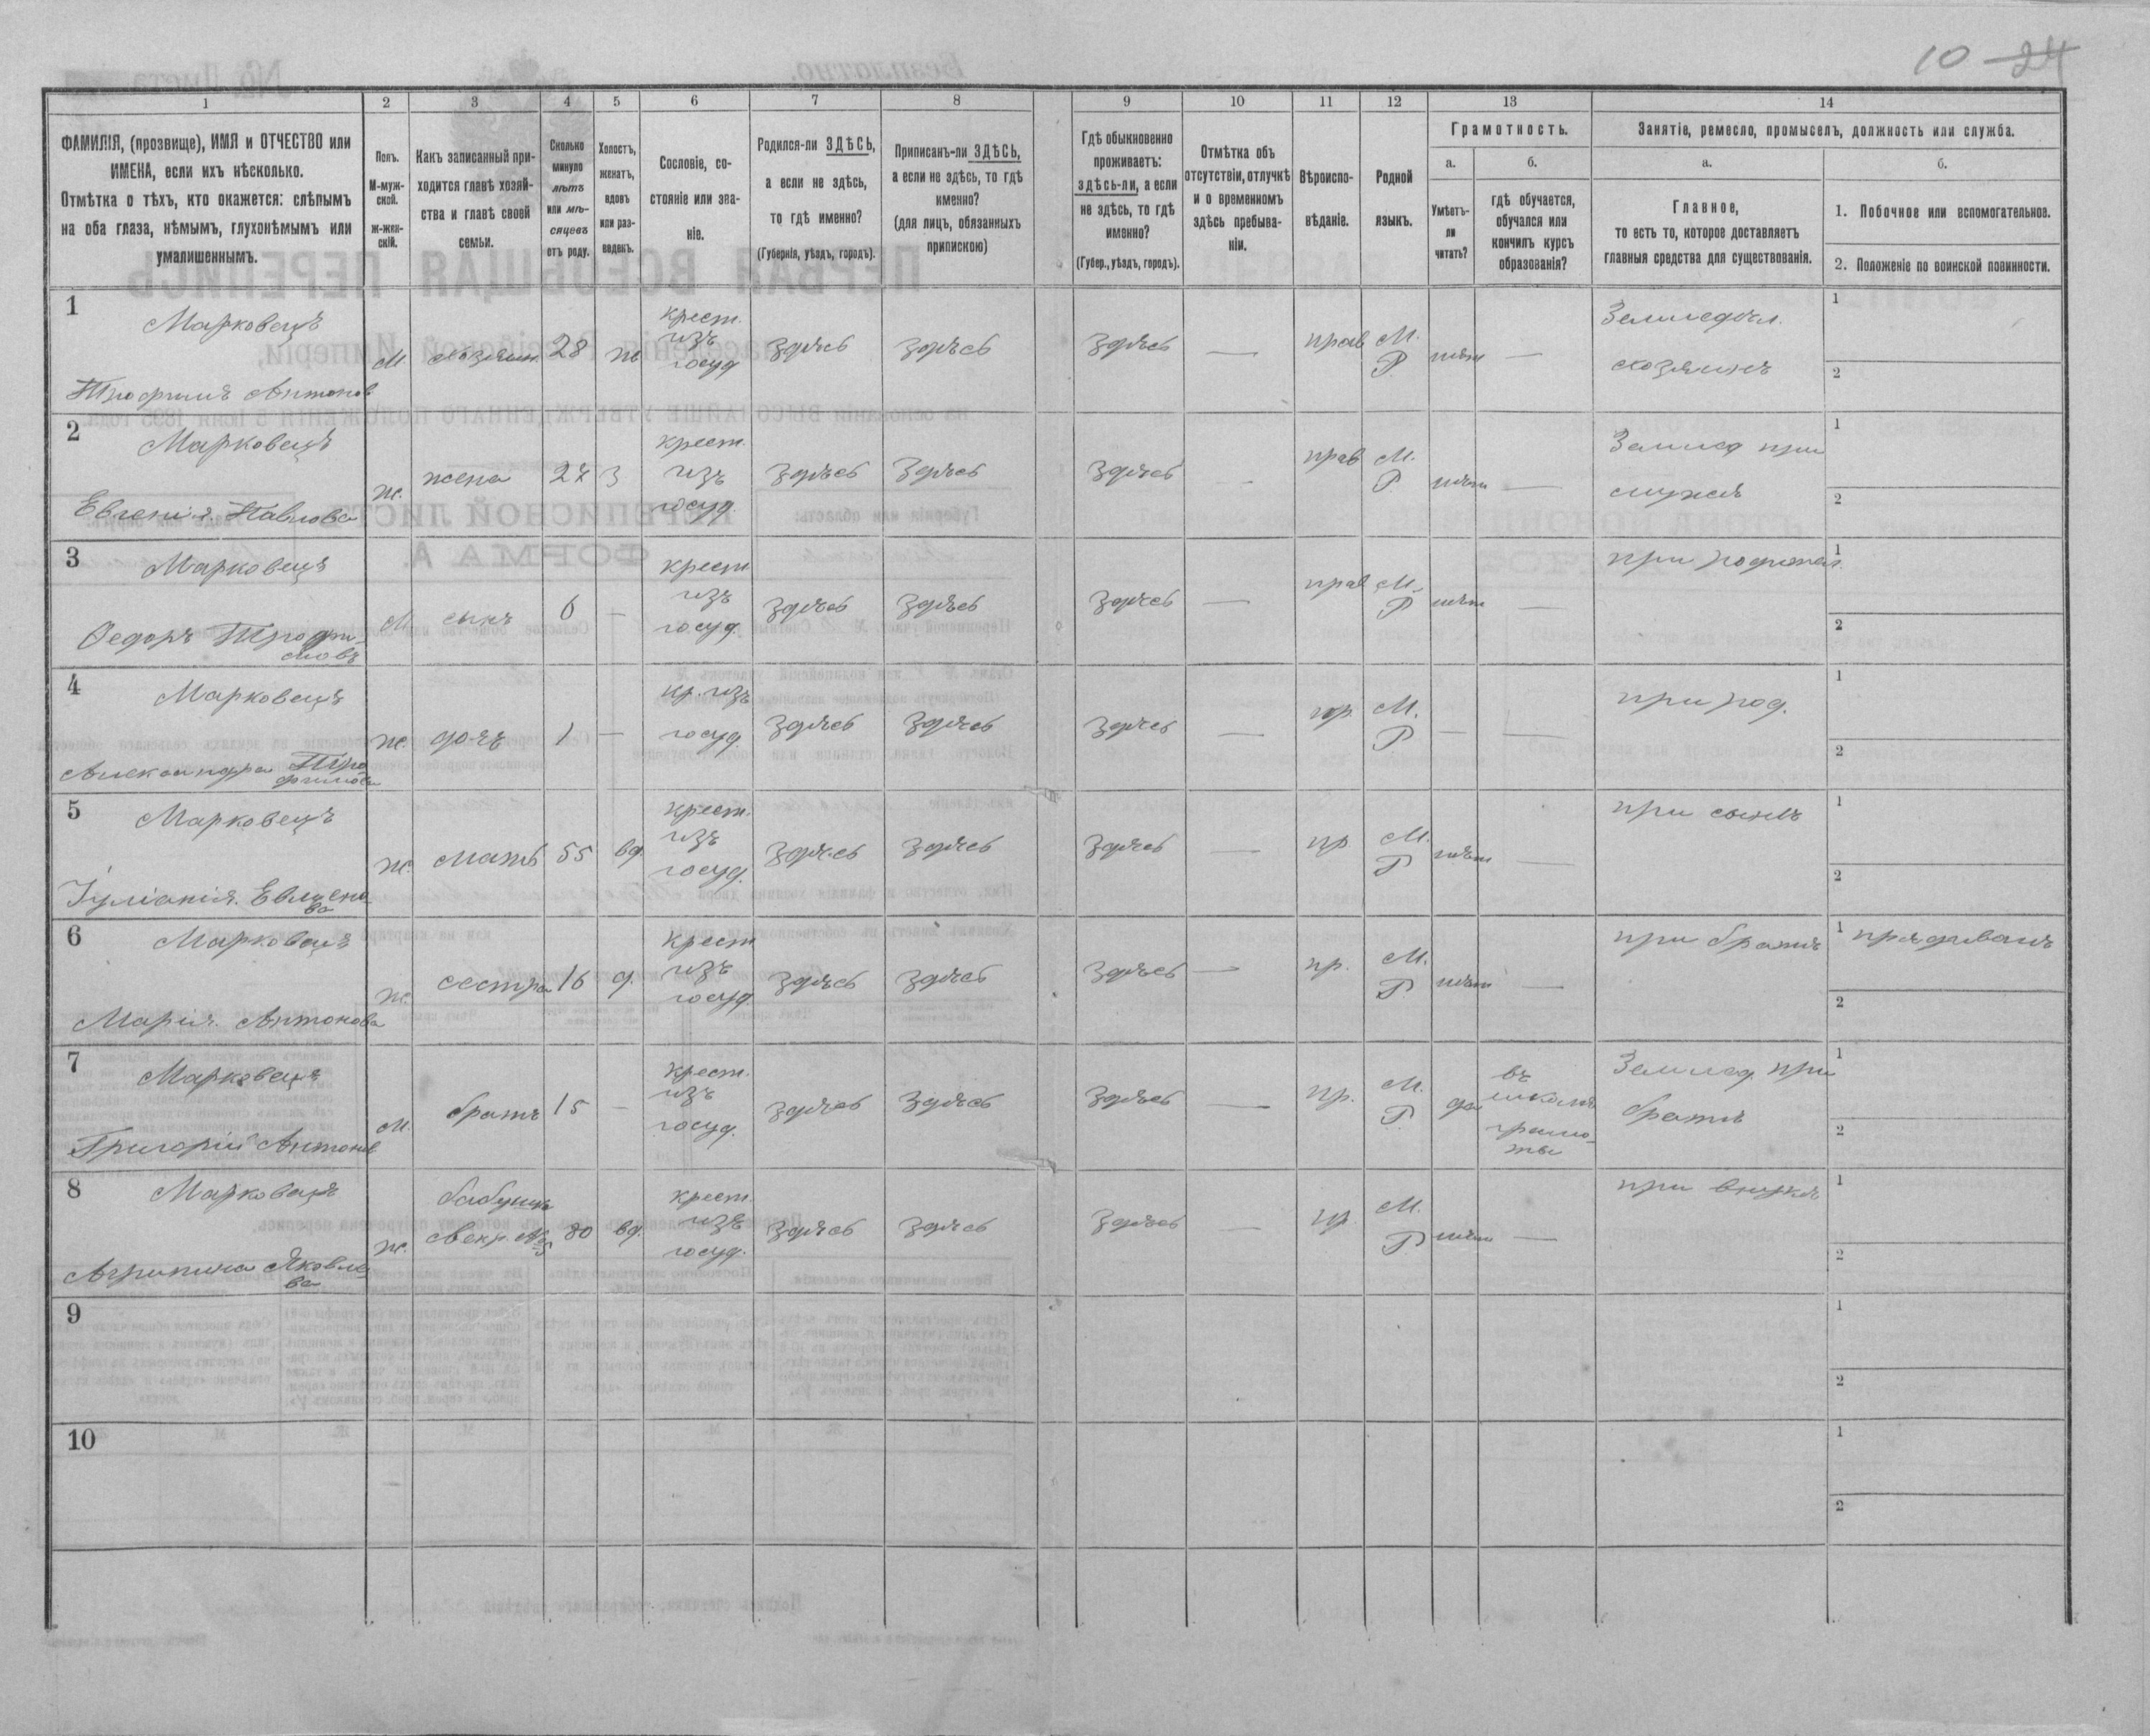 10 24
1 2 3 4 5 6 7 8 9 10 11 12 13 14
ФАМИЛІЯ, (прозвище), ИМЯ и ОТЧЕСТВО или
ИМЕНА, если ихъ нѣсколько.
Отмѣтка о тѣхъ, кто окажется: слѣпымъ
на оба глаза, нѣмымъ, глухонѣмымъ или
умалишеннымъ.
Полъ.
М-муж-
ской.
ж-жен-
скій.
Какъ записанный при-
ходится главѣ хозяй-
ства и главѣ своей
семьи.
Сколько
минуло
лѣтъ
или мѣ-
сяцевъ
отъ роду.
Холостъ,
женатъ,
вдовъ
или раз-
веденъ.
Сословіе, со-
стояніе или зва-
ніе.
Родился-ли ЗДѢСЬ,
а если не здѣсь,
то гдѣ именно?
(Губернія, уѣздъ, городъ).
Приписанъ-ли ЗДѢСЬ,
а если не здѣсь, то гдѣ
именно?
(для лицъ, обязанныхъ
припискою)
Гдѣ обыкновенно
проживаетъ:
здѣсь-ли, а если
не здѣсь, то гдѣ
именно?
(Губер., уѣздъ, городъ).
Отмѣтка объ
отсутствіи, отлучкѣ
и о временномъ
здѣсь пребыва-
ніи.
Вѣроиспо-
вѣданіе.
Родной
языкъ.
Грамотность.
а.
Умѣетъ-
ли
читать?
б.
гдѣ обучается,
обучался или
кончилъ курсъ
образованія?
Занятіе, ремесло, промыселъ, должность или служба.
а.
Главное,
то есть то, которое доставляетъ
главныя средства для существованія.
б.
1. Побочное или вспомогательное.
2. Положеніе по воинской повинности.
1
Марковецъ
Трофимъ Антонов
М
хозяин
28
ж
крест.
изъ
госуд
здѣсь
здѣсь
здѣсь
—
прав
М.
Р
нѣт
—
Землєдѣл.
хозяинъ
1
2
2
Марковецъ
Евгенія Павлова
ж.
жена
27
З
крест.
изъ
госуд.
здѣсь
здѣсь
здѣсь
-
прав
М.
Р
нѣт
—
Землед при
мужѣ
1
2
3
Марковецъ
Ѳедоръ Трофи
мовъ
М
сынъ
6
—
крест
изъ
госуд.
здѣсь
здѣсь
здѣсь
—
прав
М.
Р
нѣт
—
при родител
1
2
4
Марковецъ
Александра Тро
фимова
ж.
дочь
1
—
кр. изъ
госуд.
здѣсь
здѣсь
здѣсь
—
пр.
М.
Р
—
—
при род.
1
2
5
Марковецъ
Іуліанія
ж.
мать
55
вд.
крест.
изъ
госуд.
здѣсь
здѣсь
здѣсь
—
пр
М.
Р
нѣт
—
при сынѣ
1
2
6
Марковецъ
Марія Антонова
ж.
сестра
16
д.
крест
изъ
госуд.
здѣсь
здѣсь
здѣсь
—
пр.
М.
Р
нѣт
—
при братѣ
1
2
7
Марковецъ
Григорій Антонов
М.
братъ
15
—
крест.
изъ
госуд.
здѣсь
здѣсь
здѣсь
—
пр.
М.
Р
да
въ
школѣ
грамо-
ты
Землед. при
братѣ
1
2
8
Марковецъ
Агрипина Яковле
ва
ж.
бабушка
свекр. №5
80
вд.
крест.
изъ
госуд.
здѣсь
здѣсь
здѣсь
—
пр
М.
Р
нѣт
—
при внукѣ
1
2
9
1
2
10
1
2